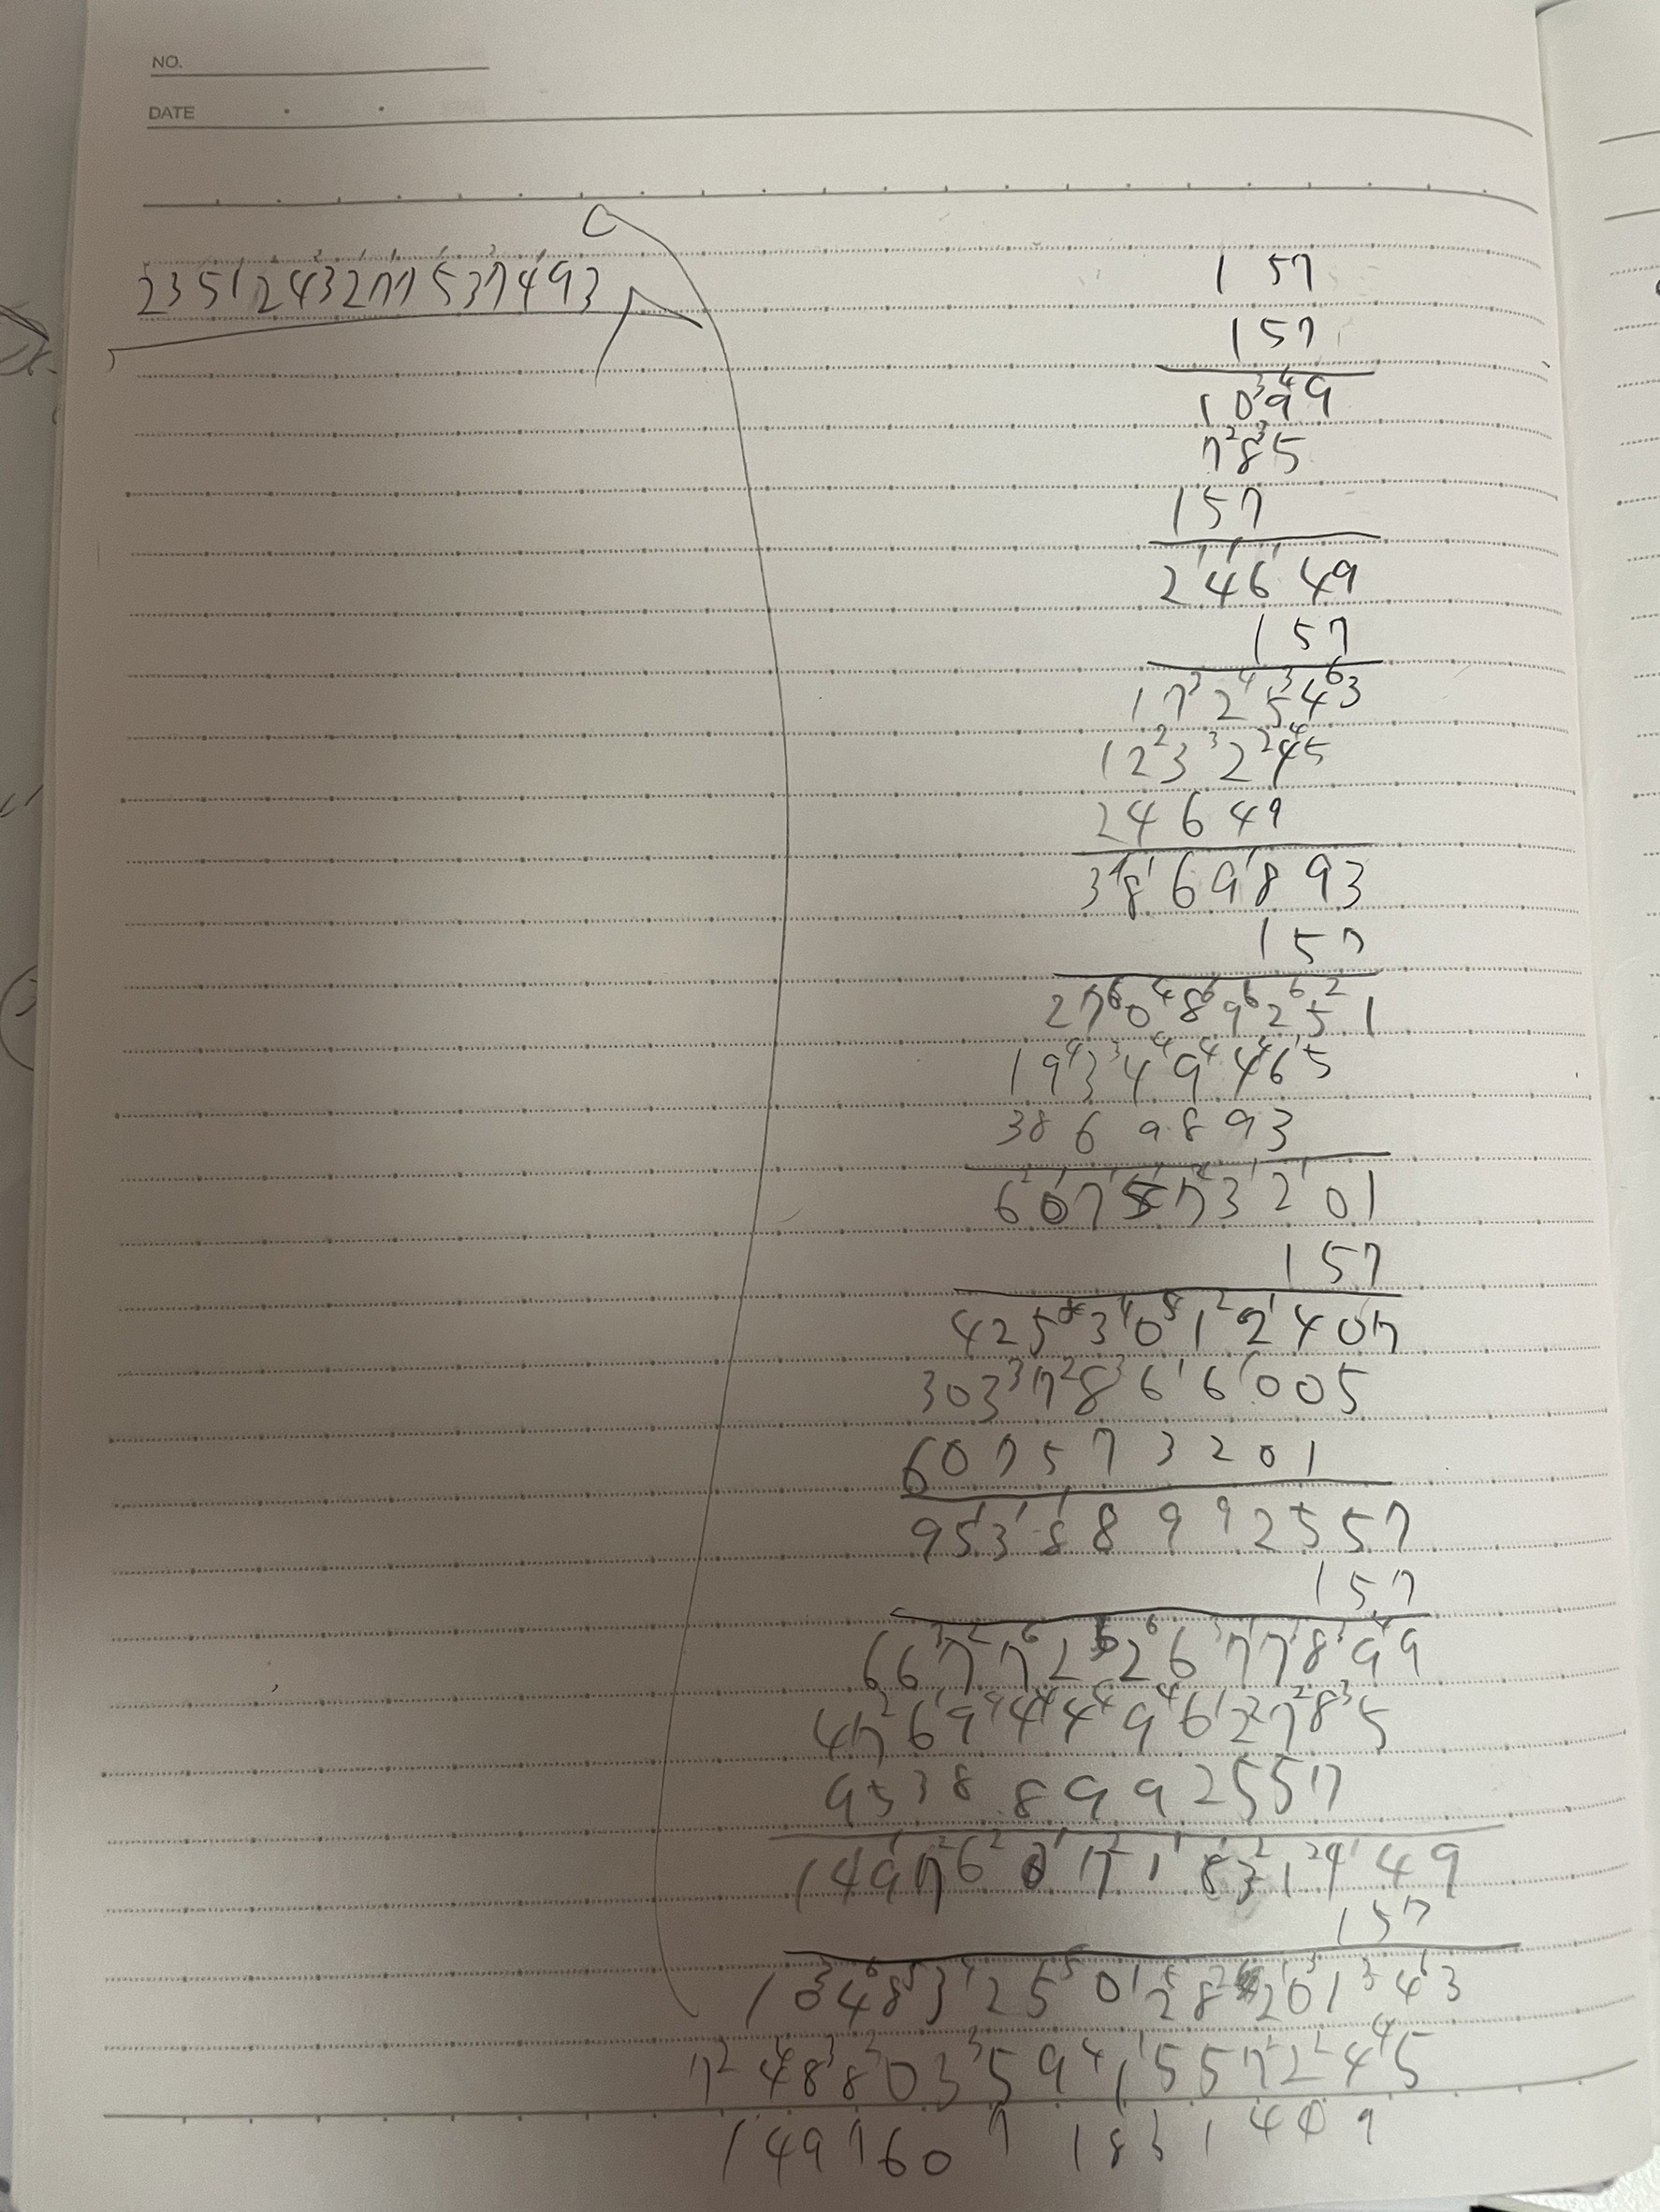 NO.
DATE
2351243277537493
157
157
1099
785
157
24649
157
172543
123245
24649
3869893
157
27089251
19349465
3869893
607573201
157
4253012407
3037866005
607573201
95388992557
157
667722677899
476944962785
95388992557
14976071831449
157
104832502820143
748803591557245
14976071831449